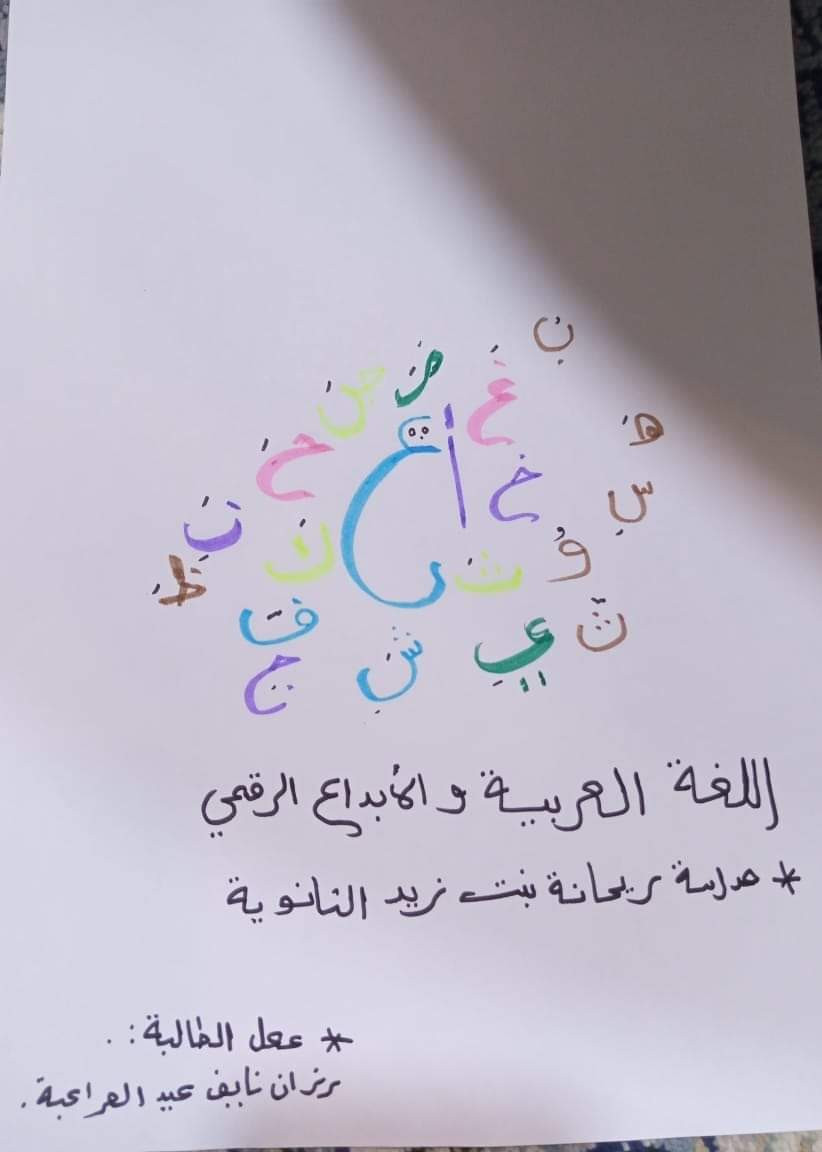 نِ
ضَ
ضَ غَ
خَ
أ خَ
هَ
سِ
نَ
كَ
ثَ
وُ
ظَ
فَ
شِ
يِ
ثّ
ج
اللغة العربية و الأبداع الرقمي
* مدرسة ريحانة بنت زيد الثانوية
* عمل الطالبة: .
رزان نايف عيد المراعبة.